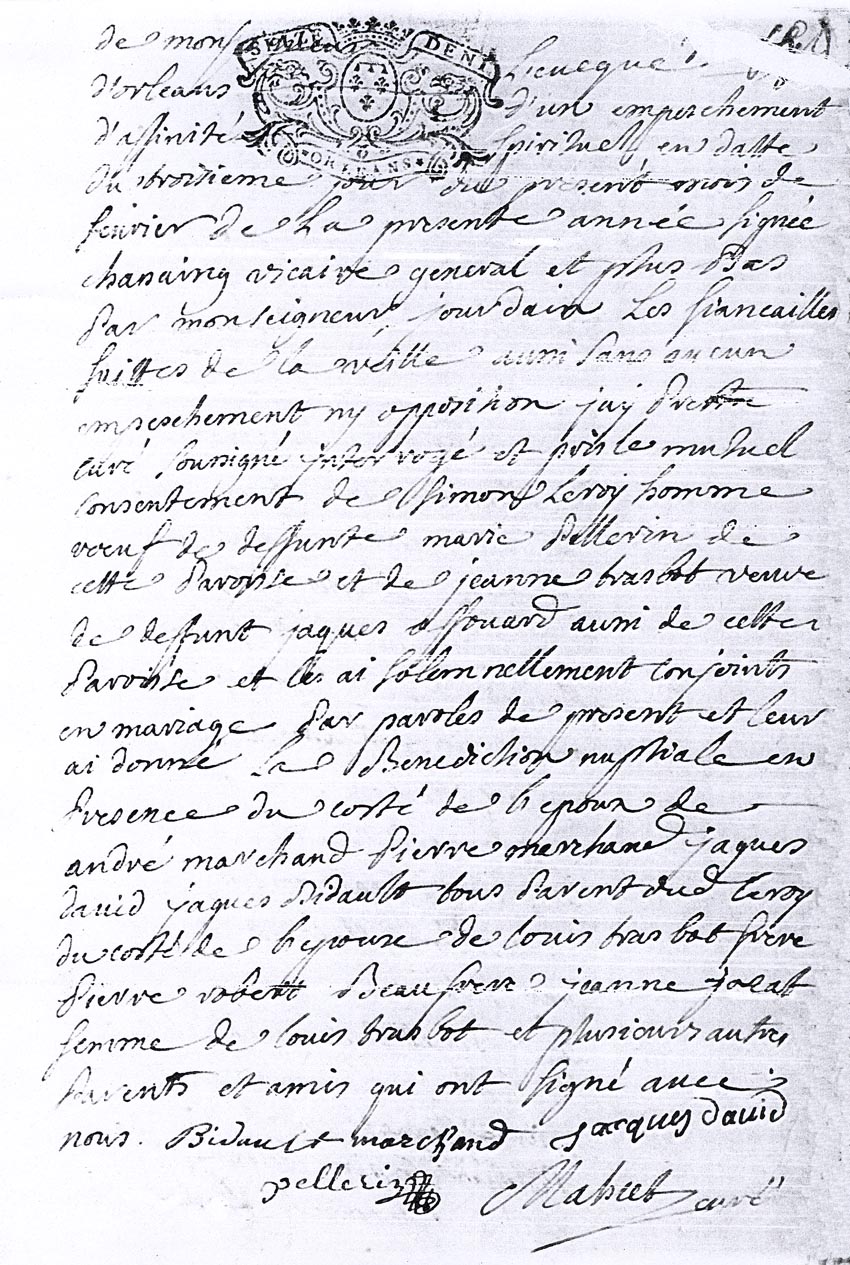 de monseigneur Leveque
SIXIE DENI
d'orleans d'un empeschement
d'affinité spirituel en datte
ORLEANS
du troisieme jour du present mois de
fevrier de La presente année signée
vicaire general et plus Bas
Par monseigneur jourdain Les fiancailles
faittes de la veille aussi sans aucun
empeschement ny opposition jay Prestre
curé soussigné interrogé et pris le mutuel
consentement de simon Leroy homme
vœuf de deffunte marie Pellerin de
cette Paroisse et de jeanne trasbot veuve
de deffunt jaques assouard aussi de cette
Paroisse et les ai solemnellement conjoints
en mariage Par paroles de present et leur
ai donné La Benediction nuptiale en
Presence du costé de l'epoux de
andré marchand Pierre marchand jaques
david jaques Bidault tous Parent dud leroy
du costé de l'epouse de louis trasbot frere
Pierre robert Beaufrere jeanne
femme de louis trasbot et plusieurs autres
Parents et amis qui ont signé avec
nous. Bidault marchand jacques david
pellerin curé